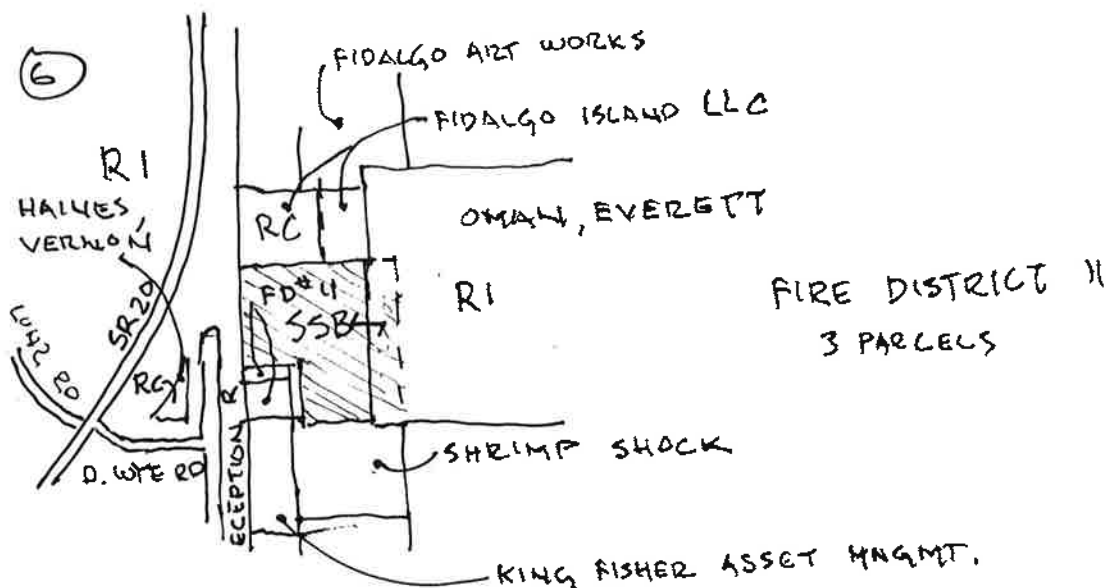 6
FIDALGO ART WORKS
FIDALGO ISLAND LLC
R I
HAINES,
VERNON
RC
OMAN, EVERETT
FD#11
SSB
R I
FIRE DISTRICT 11
3 PARCELS
SR20
RC
D. WYE RD
ECEPTION R
SHRIMP SHOCK
KING FISHER ASSET MNGMT.